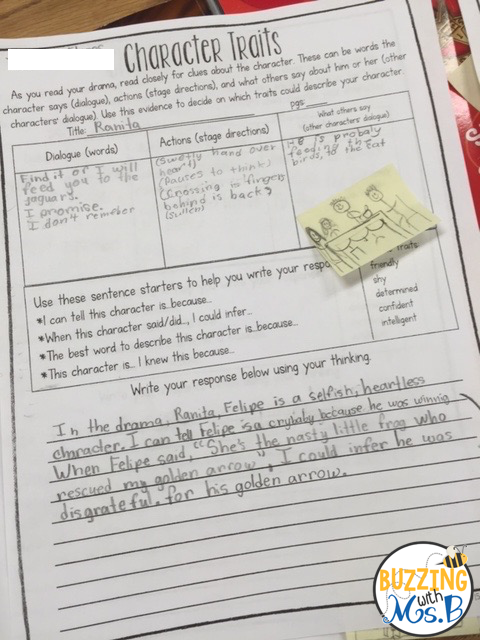 Character Traits
As you read your drama, read closely for clues about the character. These can be words the
character says (dialogue), actions (stage directions), and what others say about him or her (other
characters' dialogue). Use this evidence to decide on which traits could describe your character.
Title: Ranita pgs:
Dialogue (words)
Find it or I will
feed you to the
jaguars.
I promise.
I don't remember
Actions (stage directions)
(Swetly hand over
heart)
(Pauses to think)
(Crossing is fingers
behind is back)
(Sullen)
What others say
(other characters' dialogue)
He is probaly
feeding the
birds, to the cat
traits
friendly
shy
determined
confident
intelligent
Use these sentence starters to help you write your
*I can tell this character is...because...
*When this character said/did..., I could infer...
*The best word to describe this character is...because...
*This character is... I knew this because...
Write your response below using your thinking.
In the drama, Ranita, Felipe is a selfish, heartless
character. I can tell Felipe is a crybaby because he was winnig
When Felipe said, "She's the nasty little frog who
rescued my golden arrow" I could infer he was
disgrateful. for his golden arrow.
BUZZING
with
Ms. B